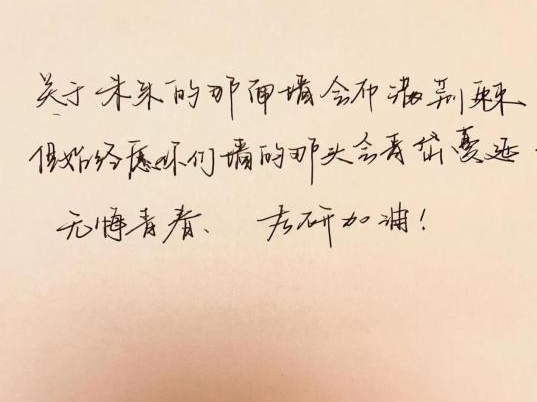 关于未来的那面墙会布满荆棘
但始终愿你们墙的那头会青苔蔓延
无悔青春、 考研加油!